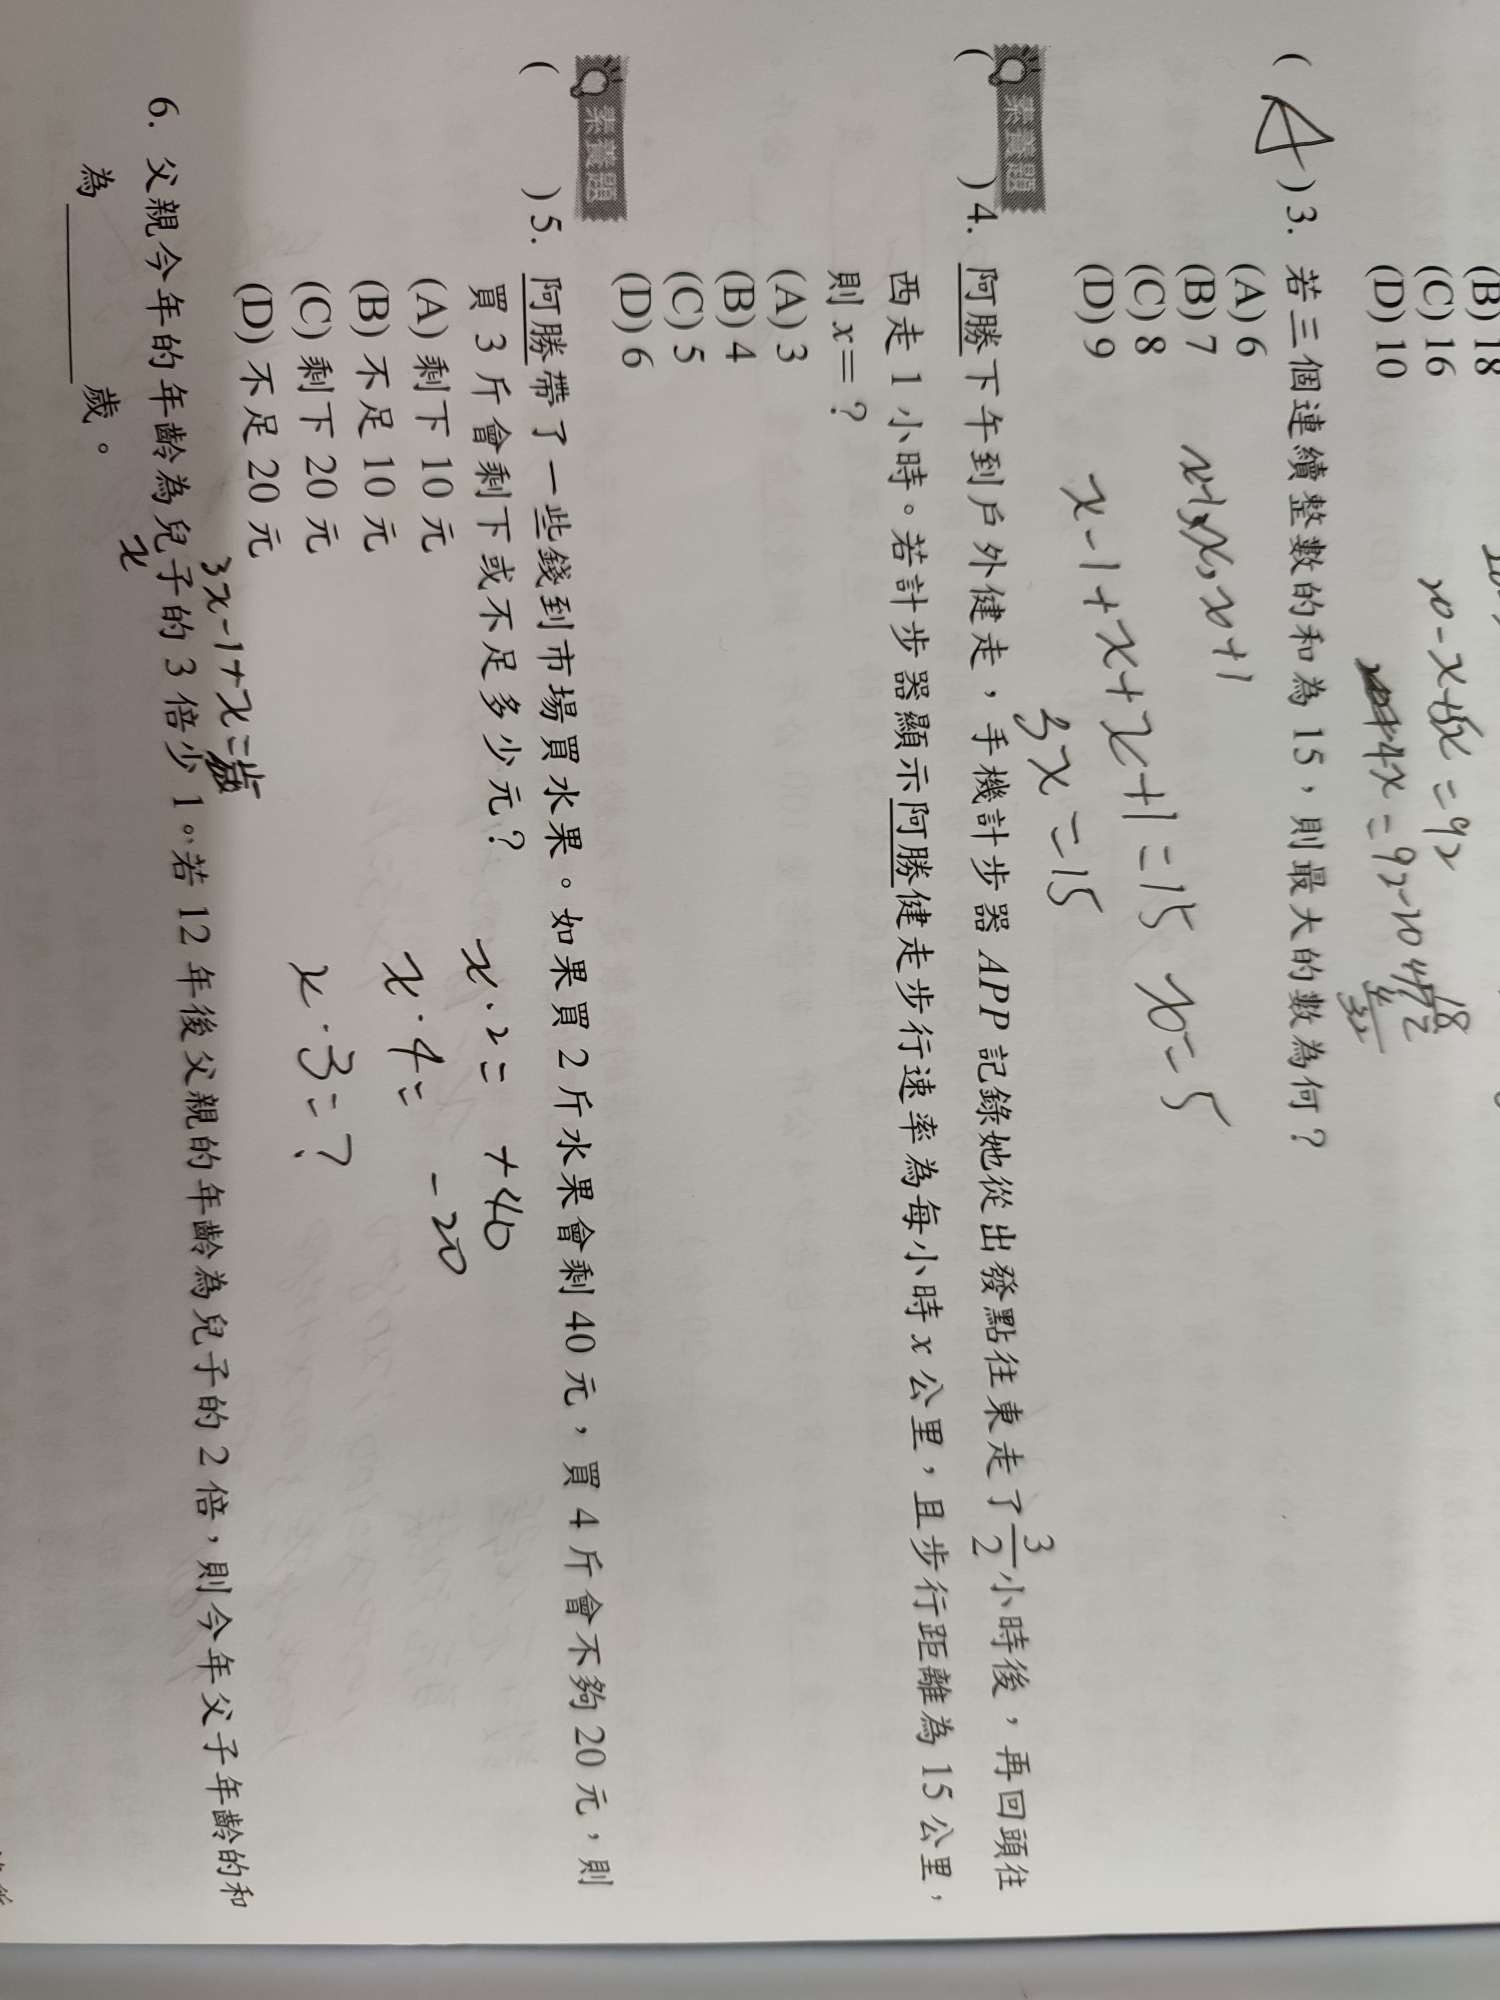 (B) 18
(C) 16
(D) 10
20-x+5x=92
4x=92-20
18
4
32
( A ) 3. 若三個連續整數的和為 15，則最大的數為何？
(A) 6
(B) 7
(C) 8
(D) 9
x, x+1
x-1+x+x+1=15 x=5
3x=15
素養題
( ) 4. 阿勝下午到戶外健走，手機計步器 APP 記錄她從出發點往東走了 3/2 小時後，再回頭往
西走 1 小時。若計步器顯示阿勝健走步行速率為每小時 x 公里，且步行距離為 15 公里，
則 x=？
(A) 3
(B) 4
(C) 5
(D) 6
素養題
( ) 5. 阿勝帶了一些錢到市場買水果。如果買 2 斤水果會剩 40 元，買 4 斤會不夠 20 元，則
買 3 斤會剩下或不足多少元？
(A) 剩下 10 元
(B) 不足 10 元
(C) 剩下 20 元
(D) 不足 20 元
x·2= +40
x·4= -20
x·3=?
3x-1+x=歲
6. 父親今年的年齡為兒子的 3 倍少 1。若 12 年後父親的年齡為兒子的 2 倍，則今年父子年齡的和
x
為 歲。